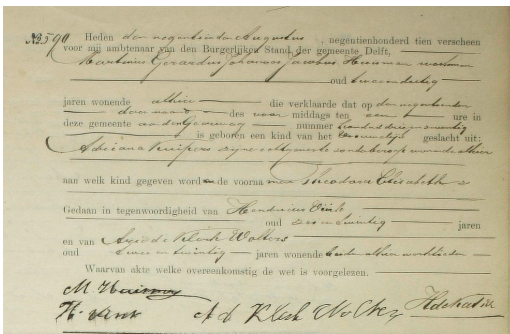 No 590 Heden den negentienden Augustus, negentienhonderd tien verscheen
voor mij ambtenaar van den Burgerlijken Stand der gemeente Delft,
Martinus Gerardus Johannes Jacobus
oud tweeendertig
jaren wonende alhier die verklaarde dat op den negentienden
dezer maand des voor middags ten een ure in
deze gemeente aan den nummer honderd drie en twintig
is geboren een kind van het vrouwelijk geslacht uit:
Adriana Kuipers zijne echtgenoote zonder beroep wonende alhier
aan welk kind gegeven word de voorna men Theodora Elisabeth
Gedaan in tegenwoordigheid van Hendricus Vink
oud zes en twintig jaren
en van Arie de Klerk Wolters
oud twee en twintig jaren wonende beiden alhier
Waarvan akte welke overeenkomstig de wet is voorgelezen.
H. Vink A d Klerk Wolters